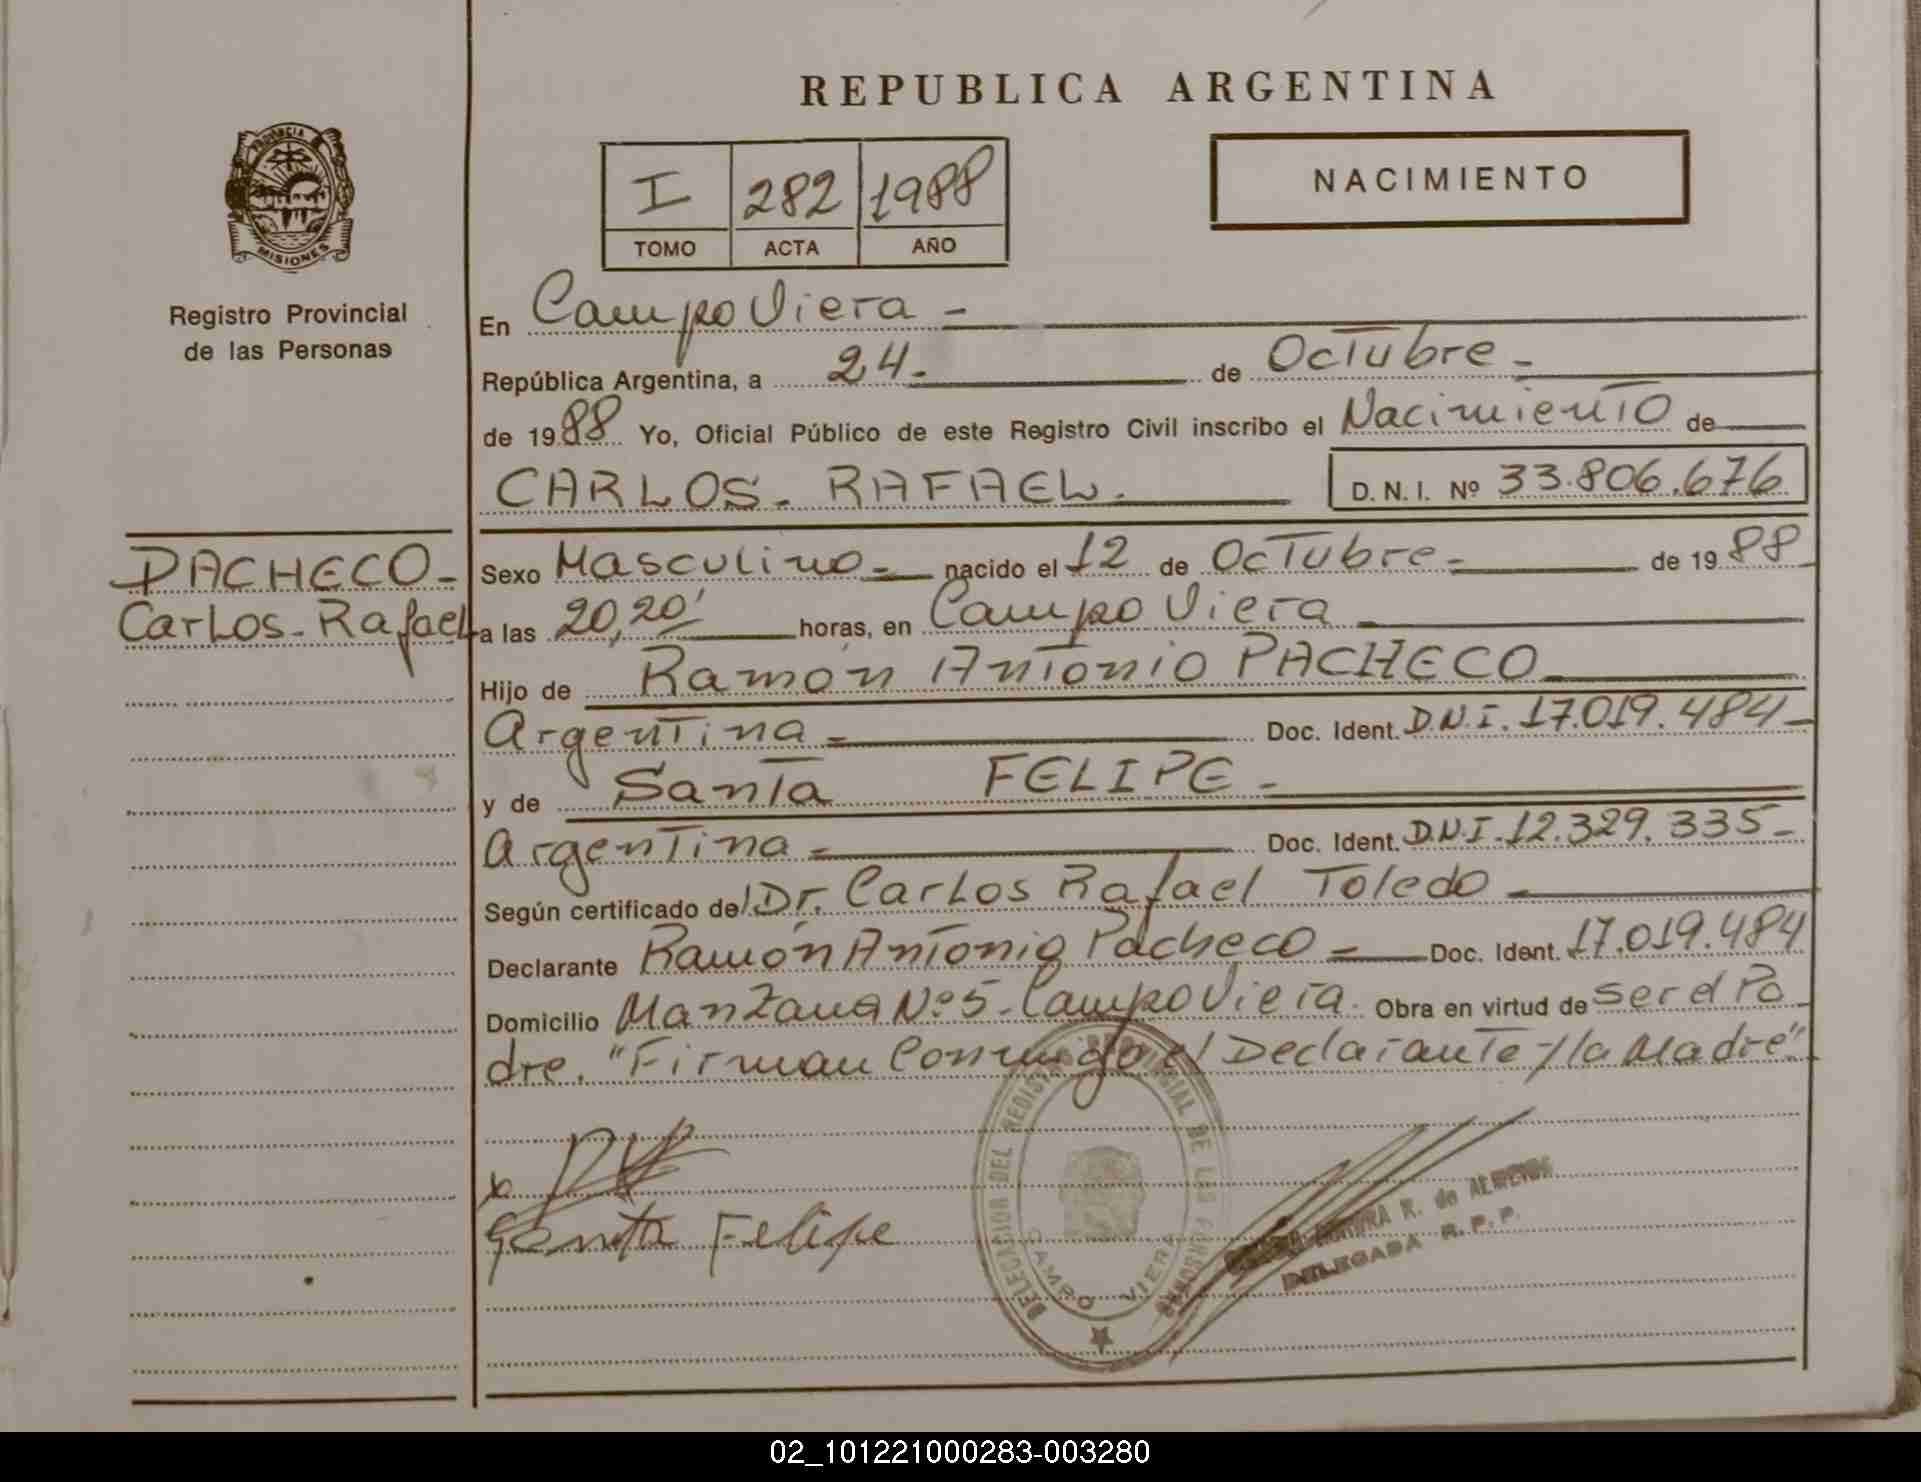 REPUBLICA ARGENTINA
PROVINCIA
MISIONES
Registro Provincial
de las Personas
I 282 1988
TOMO ACTA AÑO
NACIMIENTO
En Campo Viera -
República Argentina, a 24.- de Octubre -
de 1988 Yo, Oficial Público de este Registro Civil inscribo el Nacimiento de
CARLOS - RAFAEL.- D.N.I. Nº 33.806.676
PACHECO -
Carlos - Rafael
Sexo Masculino - nacido el 12 de Octubre - de 1988
a las 20,20' horas, en Campo Viera
Hijo de Ramón Antonio PACHECO
Argentina - Doc. Ident. D.N.I. 17.019.484 -
y de Santa FELIPE -
Argentina - Doc. Ident. D.N.I. 12.329.335 -
Según certificado del Dr. Carlos Rafael Toledo -
Declarante Ramón Antonio Pacheco - Doc. Ident. 17.019.484
Domicilio Manzana Nº 5 - Campo Viera. Obra en virtud de ser el Pa
dre. "Firman Conmigo el Declarante y la Madre"
Santa Felipe
DELEGACION DEL REGISTRO PROVINCIAL DE LAS PERSONAS
CAMPO VIERA
R. de ALMEIDA
DELEGADA R.P.P.
02_101221000283-003280